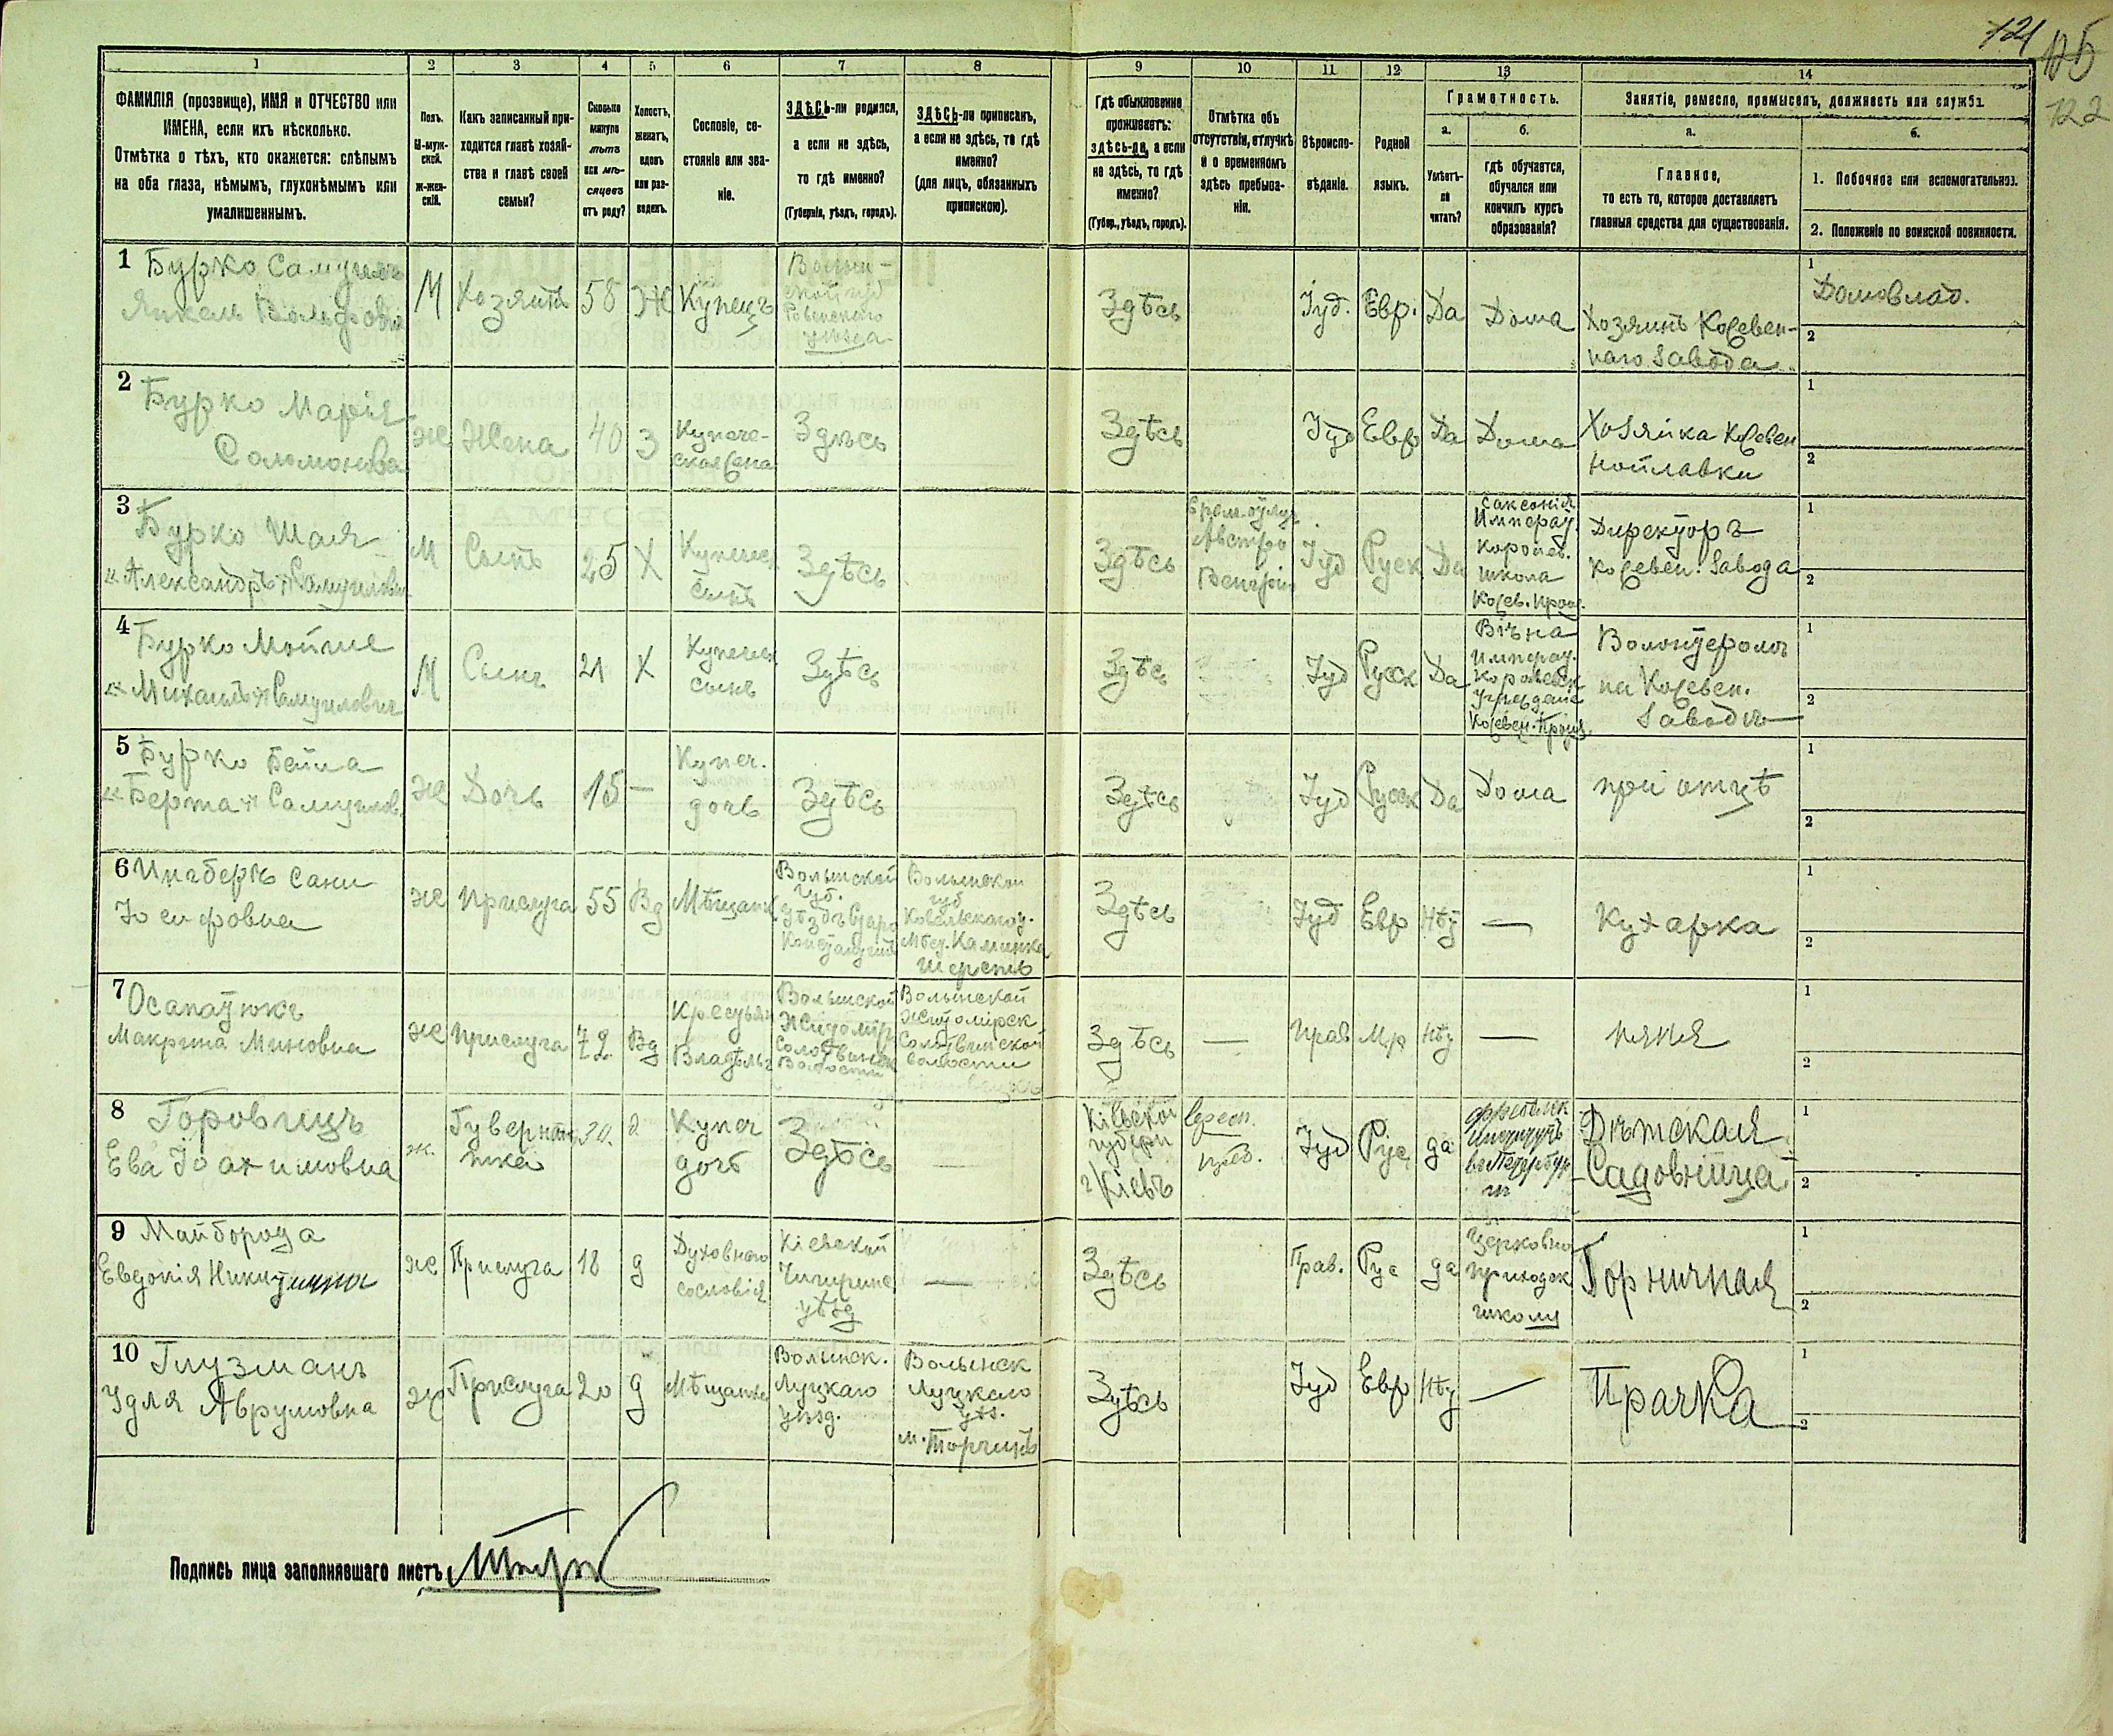 121
125
122
1
2
3
4
5
6
7
8
9
10
11
12
13
14
ФАМИЛІЯ (прозвище), ИМЯ и ОТЧЕСТВО или
ИМЕНА, если ихъ нѣсколько.
Отмѣтка о тѣхъ, кто окажется: слѣпымъ
на оба глаза, нѣмымъ, глухонѣмымъ или
умалишеннымъ.
Полъ.
М-муж-
ской.
ж-жен-
скій.
Какъ записанный при-
ходится главѣ хозяй-
ства и главѣ своей
семьи?
Сколько
минуло
лѣтъ
или мѣ-
сяцевъ
отъ роду?
Холостъ,
женатъ,
вдовъ
или раз-
веденъ.
Сословіе, со-
стояніе или зва-
ніе.
ЗДѢСЬ-ли родился,
а если не здѣсь,
то гдѣ именно?
(Губернія, уѣздъ, городъ).
ЗДѢСЬ-ли приписанъ,
а если не здѣсь, то гдѣ
именно?
(для лицъ, обязанныхъ
припискою).
Гдѣ обыкновенно
проживаетъ:
здѣсь-ли, а если
не здѣсь, то гдѣ
именно?
(Губер., уѣздъ, городъ).
Отмѣтка объ
отсутствіи, отлучкѣ
и о временномъ
здѣсь пребыва-
ніи.
Вѣроиспо-
вѣданіе.
Родной
языкъ.
Грамотность.
а.
Умѣетъ-
ли
читать?
б.
гдѣ обучается,
обучался или
кончилъ курсъ
образованія?
Занятіе, ремесло, промыселъ, должность или служба.
а.
Главное,
то есть то, которое доставляетъ
главныя средства для существованія.
б.
1. Побочное или вспомогательное.
2. Положеніе по воинской повинности.
1 Бурко Самуилъ
Янкель Вольфовъ
М
Хозяинъ
58
Ж
Купецъ
Волын-
ской губ
Ровенскаго
уѣзда
Здѣсь
Іуд.
Евр.
Да
Дома
Хозяинъ Кожевен-
наго Завода
1
Домовлад.
2
2
Бурко Марія
Соломонова
ж
Жена
40
З
Купече-
ская жена
Здѣсь
Здѣсь
Іуд
Евр
Да
Дома
Хозяйка Кожевен
ной лавки
1
2
3
Бурко Шая
„Александръ" Самуиловичъ
М
Сынъ
25
Х
Купечес
сынъ
Здѣсь
Здѣсь
Австро
Венгрія
Іуд
Руск
Да
Саксонія
Императ.
Королев.
школа
Кожев. Пром.
Директоръ
Кожевен. Завода
1
2
4
Бурко Мойше
„Михаилъ" Самуиловичъ
М
Сынъ
21
Х
Купечес
сынъ
Здѣсь
Здѣсь
Іуд
Русск
Да
Вѣна
Императ.
Королевск
Учрежден
Кожевен. Пром.
Волонтеромъ
на Кожевен.
Заводѣ
1
2
5
Бурко Бейла
„Берта" Самуилов.
ж
Дочь
15
—
Купеч.
дочь
Здѣсь
Здѣсь
Іуд
Русск
Да
Дома
при отцѣ
1
2
6
Сани
Іосифовна
ж
Прислуга
55
Вд
Мѣщанк
Волынской
губ.
Уѣздъ Старо
Константин
Волынской
губ
Ковельскаго у.
Мѣст. Каминка
Шерсть
Здѣсь
Іуд
Евр
Нѣт
—
Кухарка
1
2
7
Осапатюкъ
Макрина Миновна
ж
Прислуга
42
Вд
Крестьян
Волынской
Житомір
Солотвинск
Волости
Волынской
Житомірск.
Солотвинской
волости
Здѣсь
—
Прав
Мр
Нѣт
—
няня
1
2
8
Горовицъ
Ева Іоахимовна
ж.
Гувернан-
тка
30.
д
Купеч
дочь
Здѣсь
—
Кіевской
губерн
г/Кіевъ
Іуд
Рус
да
Институтъ
въ Петербур
гѣ
Дѣтская
Садовница
1
2
9
Майборода
Евдокія Никитична
ж
Прислуга
18
д
Духовнаго
сословія
Кіевской
Чигиринс
уѣзд
—
Здѣсь
Прав.
Рус
да
Церковно
приходск
школу
Горничная
1
2
10
Глузманъ
Удля Аврумовна
ж
Прислуга
20
д
Мѣщанка
Волынск.
Луцкаго
уѣзд.
Волынск
Луцкаго
Уѣз.
м. Торчинъ
Здѣсь
Іуд
Евр
Нѣт
—
Прачка
1
2
Подпись лица заполнявшаго листъ